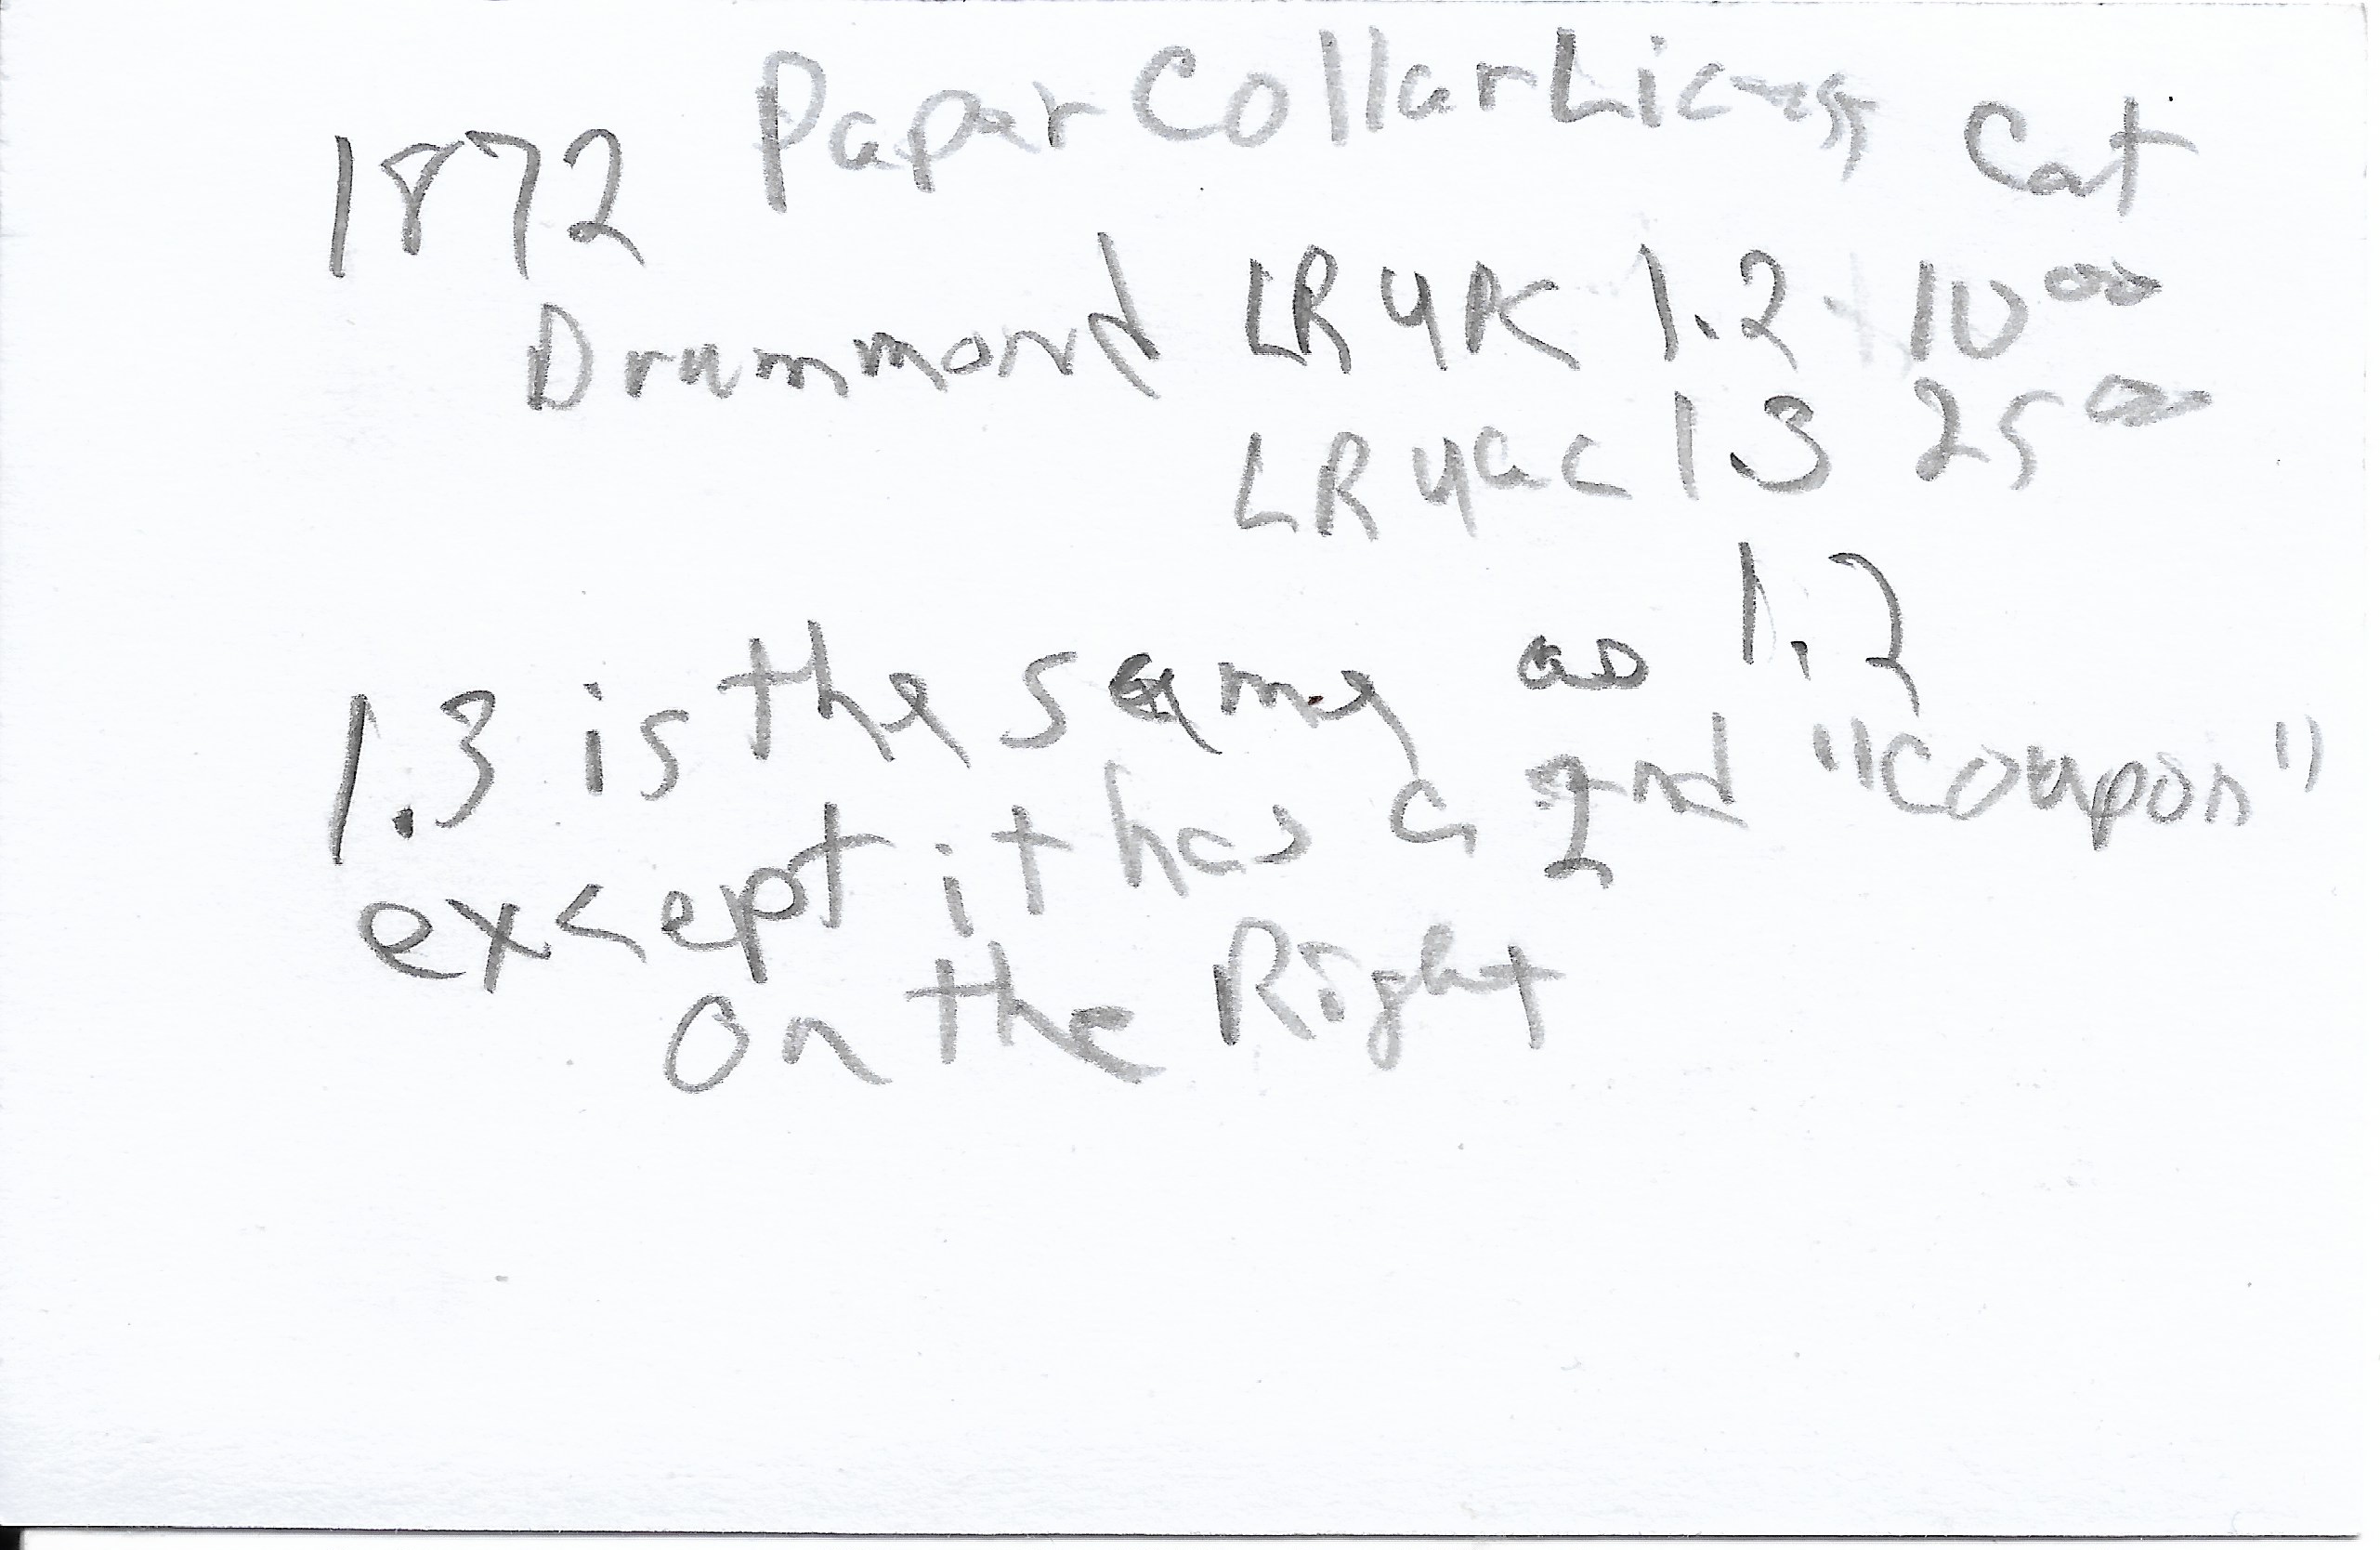 1872 Paper Collar License Cat
Drummond LR 4K 1.2 10 00
LR 4ac 1.3 25 00
1.3 is the same as 1.2
except it has a 2nd "Coupon"
On the Right